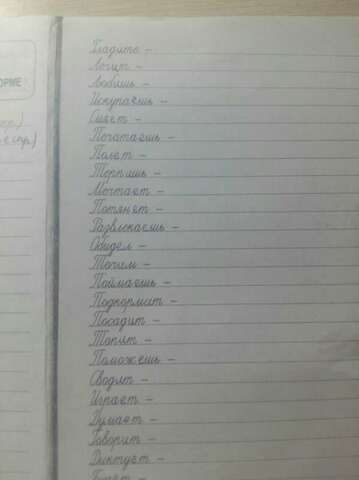 ОРМЕ
Гладить -
Логит -
Любишь -
Искупаешь -
Сияет -
Початаешь -
Полет -
Терпишь -
Мечтает -
Потянет -
Развлекаешь -
Обидел -
Точим -
Поймаешь -
Подкормит -
Посадит -
Топит -
Поможешь -
Сводят -
Играет -
Думает -
Говорит -
Диктует -